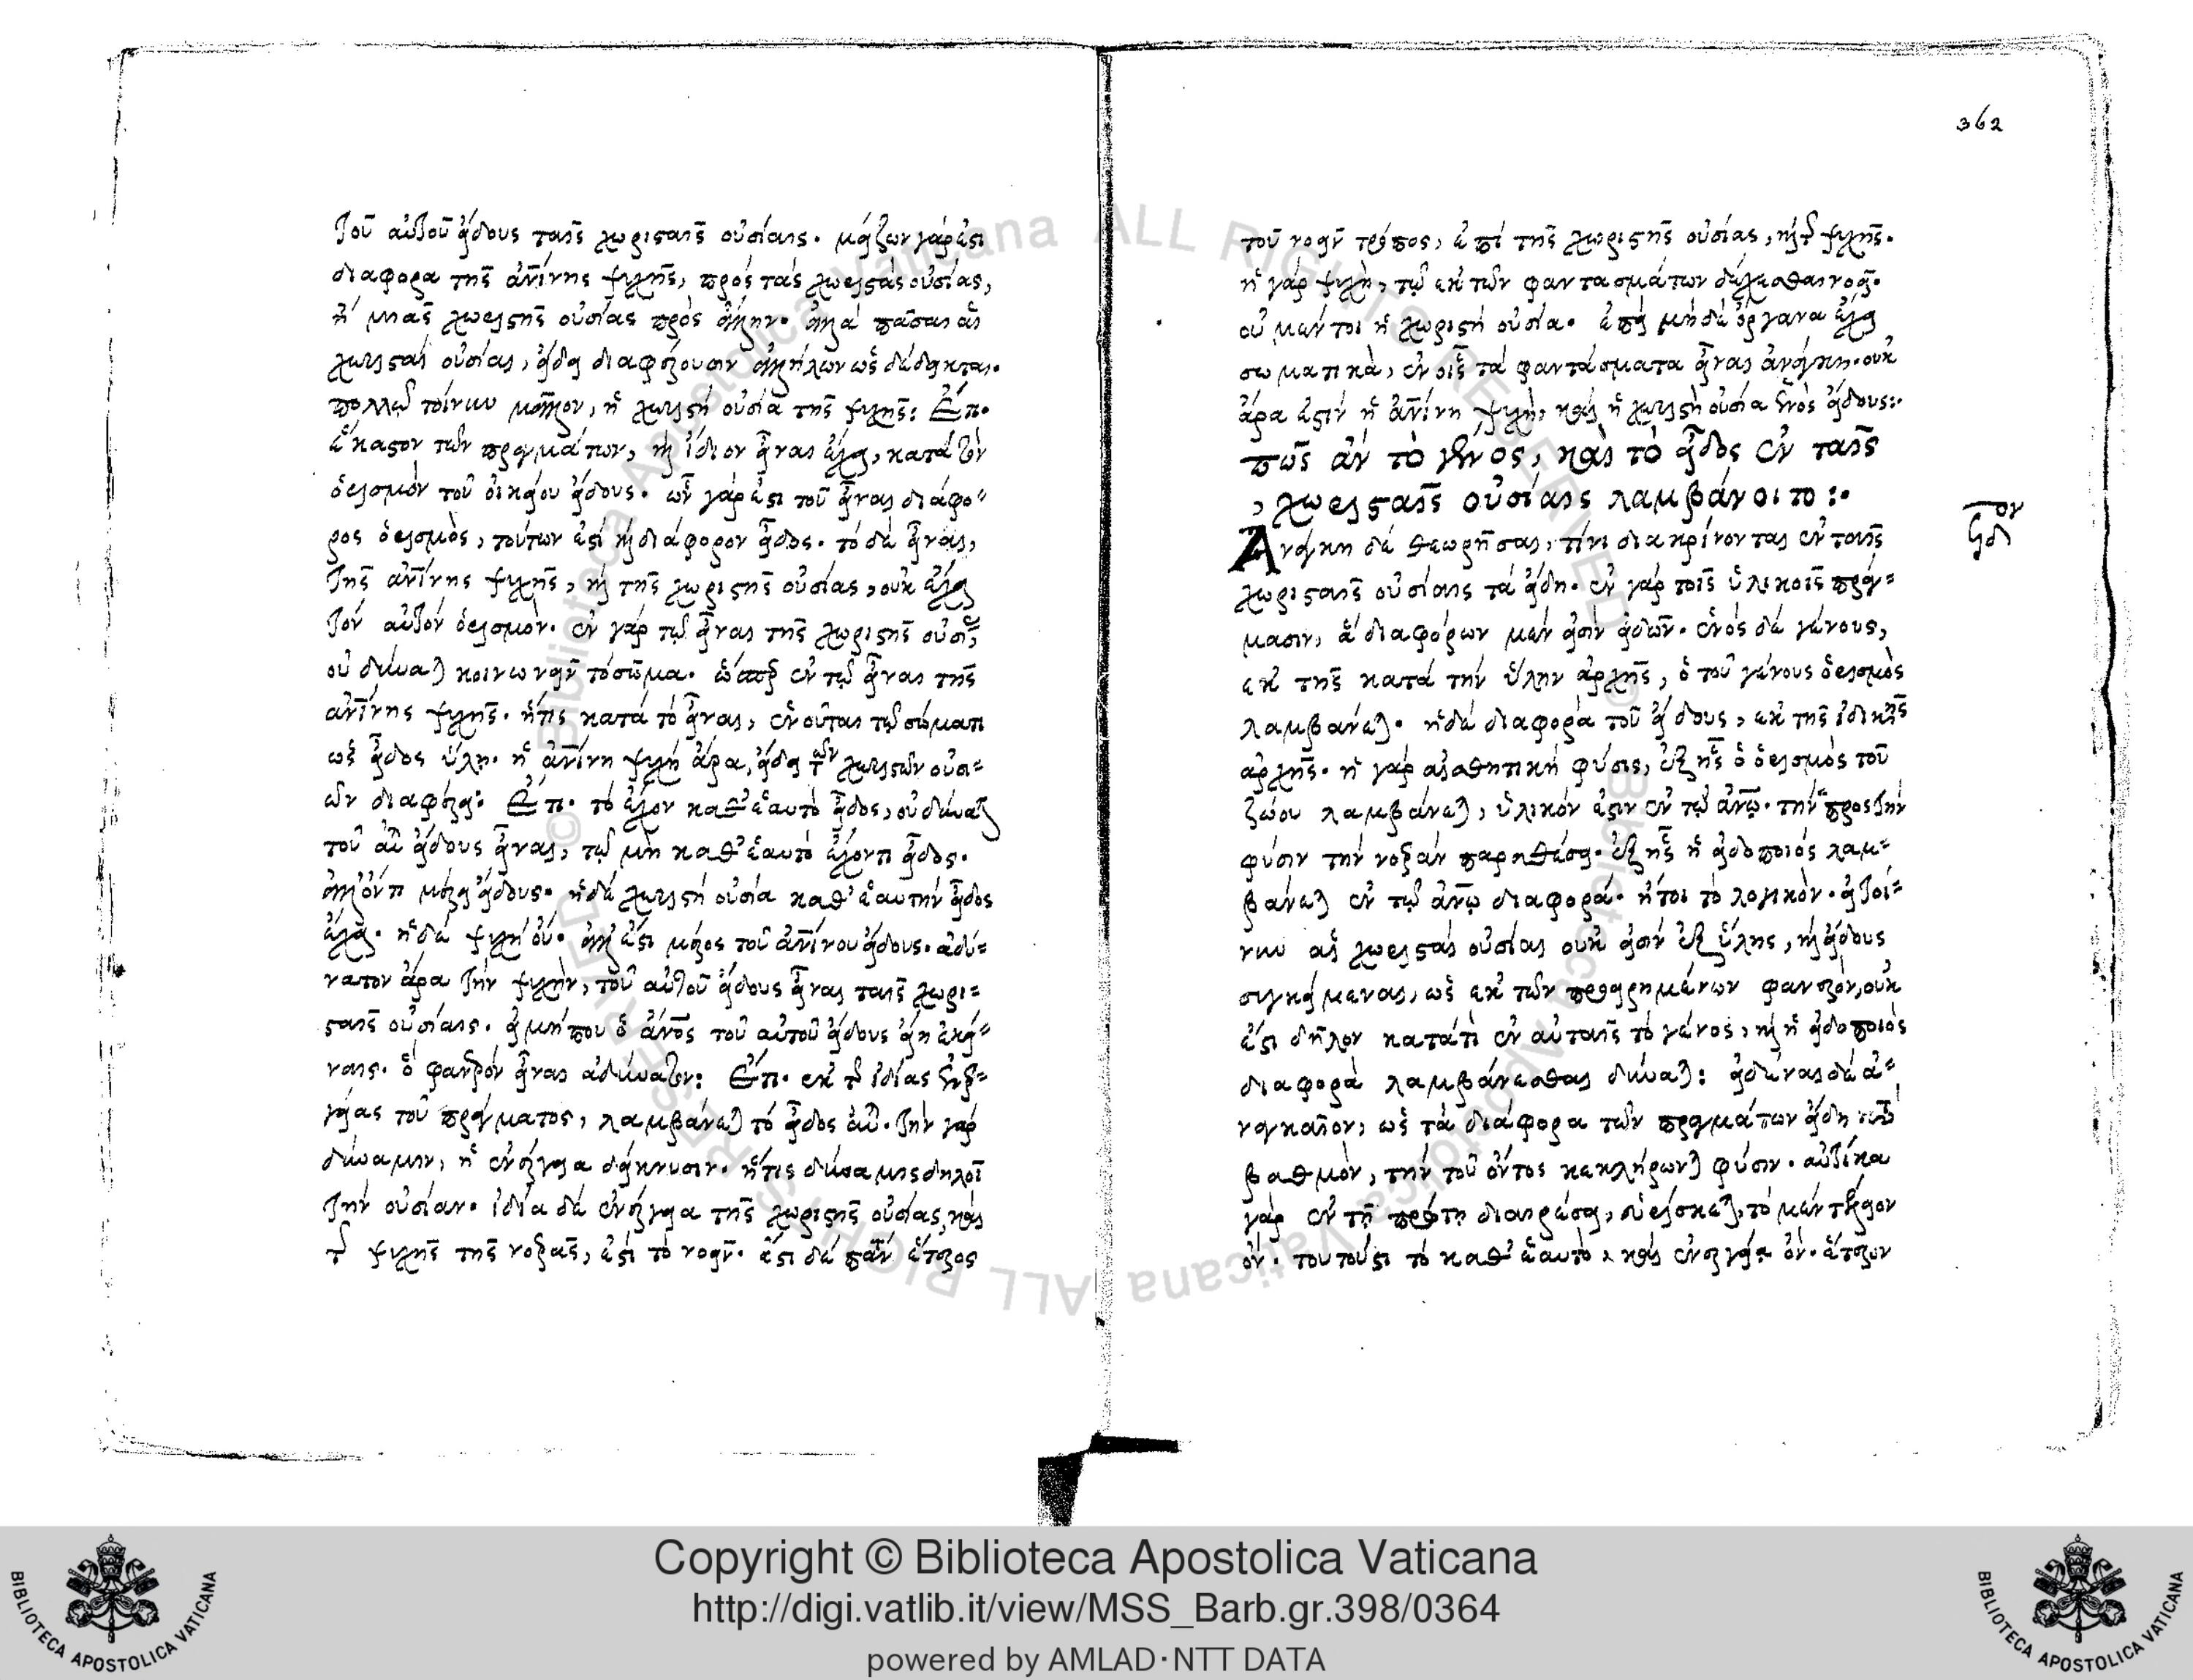 τοῦ αὐτοῦ εἴδους ταῖς χωρισταῖς οὐσίαις. μείζων γάρ ἐστι
διαφορα τῆς ἀνίνης ψυχῆς, πρὸς τὰς χωριστὰς οὐσίας,
ἢ μιᾶς χωριστῆς οὐσίας πρὸς ἄλλην. ἀλλὰ πᾶσαι αἱ
χωρισταὶ οὐσίαι, εἴδει διαφέρουσιν ἀλλήλων ὡς δέδεικται.
πολλῷ τοίνυν μᾶλλον, ἡ χωριστὴ οὐσία τῆς ψυχῆς: Ἔπ.
ἕκαστον τῶν πραγμάτων, καὶ ἴδιον εἶναι ἔχει, κατὰ τὸν
ὁρισμὸν τοῦ οἰκείου εἴδους. ὧν γάρ ἐστι τοῦ εἶναι διάφο-
ρος ὁρισμὸς, τούτων ἐστὶ καὶ διάφορον εἶδος. τὸ δὲ εἶναι,
τῆς ἀνίνης ψυχῆς, καὶ τῆς χωριστῆς οὐσίας, οὐκ ἔχει
τὸν αὐτὸν ὁρισμὸν. ἐν γὰρ τῷ εἶναι τῆς χωριστῆς οὐσί,
οὐ δύναται κοινωνεῖν τὸ σῶμα. ὥσπερ ἐν τῷ εἶναι τῆς
ἀνίνης ψυχῆς. ἥτις κατὰ τὸ εἶναι, ἑνοῦται τῷ σώματι
ὡς εἶδος ὕλῃ. ἡ ἀνίνη ψυχὴ ἄρα, εἴδει τῶν χωριστῶν οὐσι-
ῶν διαφέρει: Ἔπ. τὸ ἔχον καθ' ἑαυτὸ εἶδος, οὐ δύναται
τοῦ αὐ εἴδους εἶναι, τῷ μὴ καθ' ἑαυτὸ ἔχοντι εἶδος.
ἀλλ' ὄντι μέρει εἴδους. ἡ δὲ χωριστὴ οὐσία καθ' ἑαυτὴν εἶδος
ἔχει. ἡ δὲ ψυχὴ οὔ. ἀλλ' ἔστι μέρος τοῦ ἀνίνου εἴδους. ἀδύ-
νατον ἄρα τὴν ψυχὴν, τοῦ αὐτοῦ εἴδους εἶναι ταῖς χωρι-
σταῖς οὐσίαις. εἰ μήπου ὁ ἄνος τοῦ αὐτοῦ εἴδους εἴη ἐκεί-
ναις. ὃ φανερὸν εἶναι ἀδύνατον: Ἔπ. ἐκ τῆς ἰδίας ἐνερ-
γείας τοῦ πράγματος, λαμβάνεται τὸ εἶδος αὐ. τὴν γὰρ
δύναμιν, ἡ ἐνέργεια δείκνυσιν. ἥτις δύναμις δηλοῖ
τὴν οὐσίαν. ἰδία δὲ ἐνέργεια τῆς χωριστῆς οὐσίας, καὶ
τῆς ψυχῆς τῆς νοερᾶς, ἐστὶ τὸ νοεῖν. ἔστι δὲ πᾶν ἕτερος
362
τοῦ νοεῖν τρόπος, ἐπὶ τῆς χωριστῆς οὐσίας, καὶ τῆς ψυχῆς.
ἡ γὰρ ψυχὴ, τῷ ἐκ τῶν φαντασμάτων δέχεσθαι νοεῖ.
οὐ μέντοι ἡ χωριστὴ οὐσία. ἐπεὶ μηδὲ ὄργανα ἔχει
σωματικὰ, ἐν οἷς τὰ φαντάσματα εἶναι ἀνάγκη. οὐκ
ἄρα ἐστὶν ἡ ἀνίνη ψυχὴ, καὶ ἡ χωριστὴ οὐσία ἑνὸς εἴδους:.
πῶς ἂν τὸ γένος, καὶ τὸ εἶδος ἐν ταῖς
χωρισταῖς οὐσίαις λαμβάνοιτο:.
Ἀνάγκη δὲ θεωρῆσαι, τίνι διακρίνονται ἐν ταῖς
χωρισταῖς οὐσίαις τὰ εἴδη. ἐν γὰρ τοῖς ὑλικοῖς πράγ-
μασιν, ἃ διαφόρων μέν εἰσὶν εἰδῶν. ἑνὸς δὲ γένους,
ἐκ τῆς κατὰ τὴν ὕλην ἀρχῆς, ὁ τοῦ γένους ὁρισμὸς
λαμβάνεται. ἡ δὲ διαφορὰ τοῦ εἴδους, ἐκ τῆς εἰδικῆς
ἀρχῆς. ἡ γὰρ αἰσθητικὴ φύσις, ἐξ ἧς ὁ ὁρισμὸς τοῦ
ζώου λαμβάνεται, ὑλικόν ἐστιν ἐν τῷ ἀνῳ. τὴν πρὸς τὴν
φύσιν τὴν νοερὰν παραθέσει. ἐξ ἧς ἡ εἰδοποιὸς λαμ-
βάνεται ἐν τῷ ἀνῳ διαφορὰ. ἤτοι τὸ λογικὸν. εἰ τοί-
νυν αἱ χωρισταὶ οὐσίαι οὐκ εἰσὶν ἐξ ὕλης, καὶ εἴδους
συγκείμεναι, ὡς ἐκ τῶν προειρημένων φανερὸν, οὐκ
ἔστι δῆλον κατατὶ ἐν αὐταῖς τὸ γένος, καὶ ἡ εἰδοποιὸς
διαφορὰ λαμβάνεσθαι δύναται: εἰδέναι δὲ ἀ-
ναγκαῖον, ὡς τὰ διάφορα τῶν πραγμάτων εἴδη
βαθμὸν, τὴν τοῦ ὄντος κεκλήρωνται φύσιν. αὐτίκα
γὰρ ἐν τῇ πρώτῃ διαιρέσει, εὑρίσκεται, τὸ μὲν τέλειον
ὄν. τουτέστι τὸ καθ' ἑαυτὸ καὶ ἐνεργείᾳ ὄν. ἕτερον